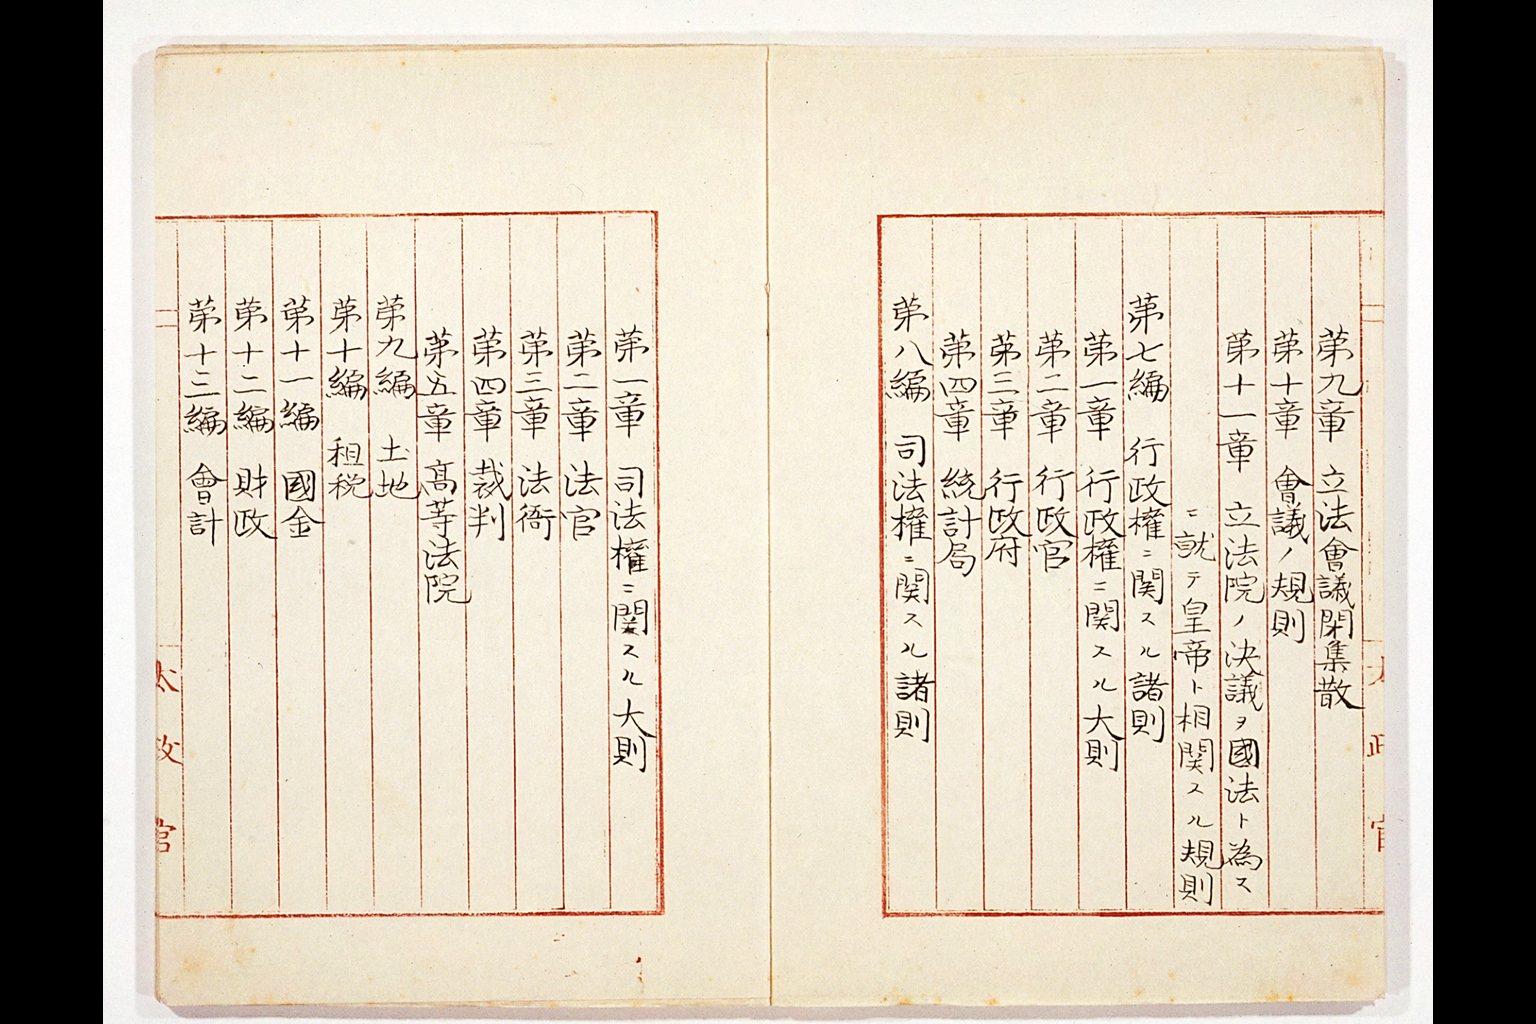 第九章 立法會議開集散
第十章 會議ノ規則
第十一章 立法院ノ決議ヲ國法ト為ス
ニ就テ皇帝ト相関スル規則
第七編 行政權ニ関スル諸則
第一章 行政權ニ関スル大則
第二章 行政官
第三章 行政府
第四章 統計局
第八編 司法權ニ関スル諸則
第一章 司法權ニ関スル大則
第二章 法官
第三章 法衙
第四章 裁判
第五章 高等法院
第九編 土地
第十編 租税
第十一編 國金
第十二編 財政
第十三編 會計
太政官